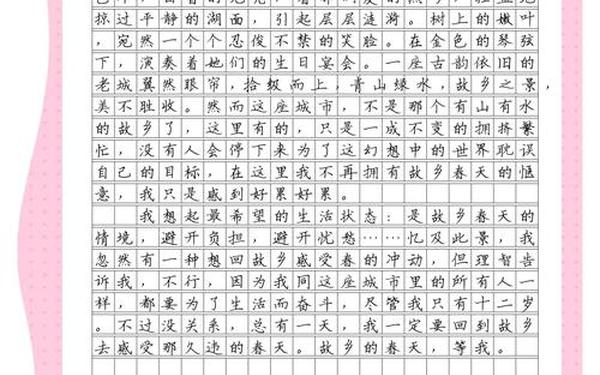 掠过平静的湖面，引起层层涟漪。树上的嫩叶
，宛然一个个忍俊不禁的笑脸。在金色的琴弦
下，演奏着她们的生日宴会。一座古韵依旧的
老城翼然眼帘，拾级而上，青山绿水，故乡之景，
美不胜收。然而这座城市，不是那个有山有水
的故乡了，这里有的，只是一成不变的拥挤繁
忙，没有人会停下来为了这幻想中的世界耽误
自己的目标，在这里我不再拥有故乡春天的惬
意，我只是感到好累好累。
我想起最希望的生活状态：是故乡春天的
情境，避开负担，避开忧愁……忆及此景，我
忽然有一种想回故乡感受春的冲动，但理智告
诉我，不行，因为我同这座城市里的所有人一
样，都要为了生活而奋斗，尽管我只有十二岁
。不过没关系，总有一天，我一定要回到故乡
去感受那久违的春天。故乡的春天，等我。